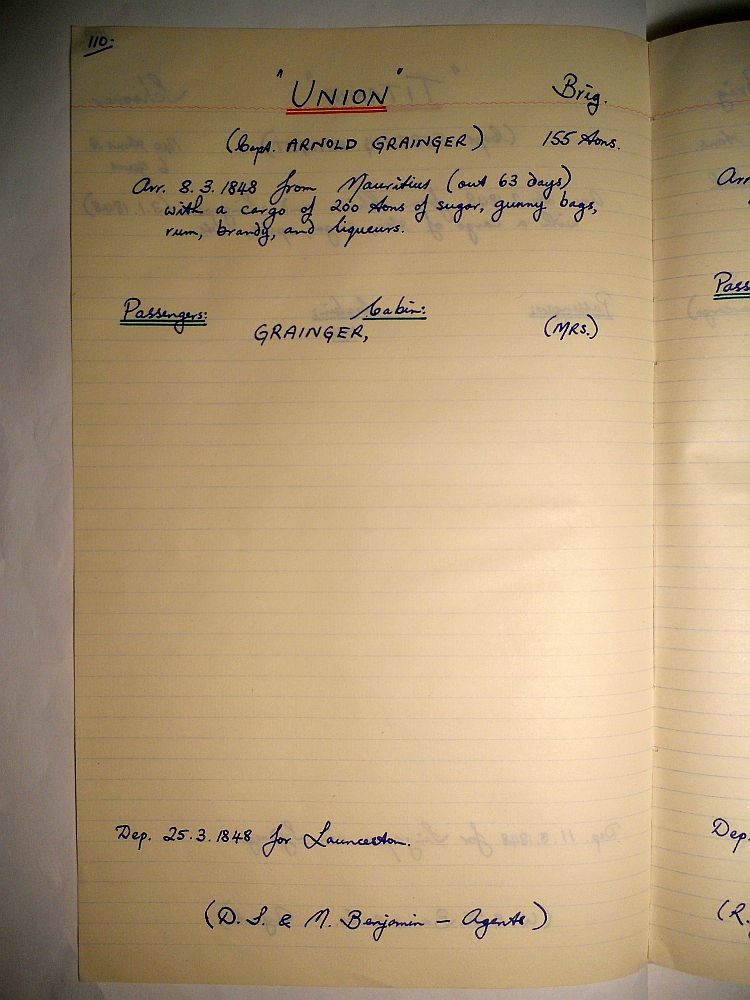 110:
"UNION" Brig.
(Capt. ARNOLD GRAINGER) 155 tons.
Arr. 8.3.1848 from Mauritius (out 63 days)
with a cargo of 200 tons of sugar, gunny bags,
rum, brandy, and liqueurs.
Passengers: Cabin:
GRAINGER, (MRS.)
Dep. 25.3.1848 for Launceston.
(D. S. & N. Benjamin – Agents)
Arr
Pass
Dep.
(R.